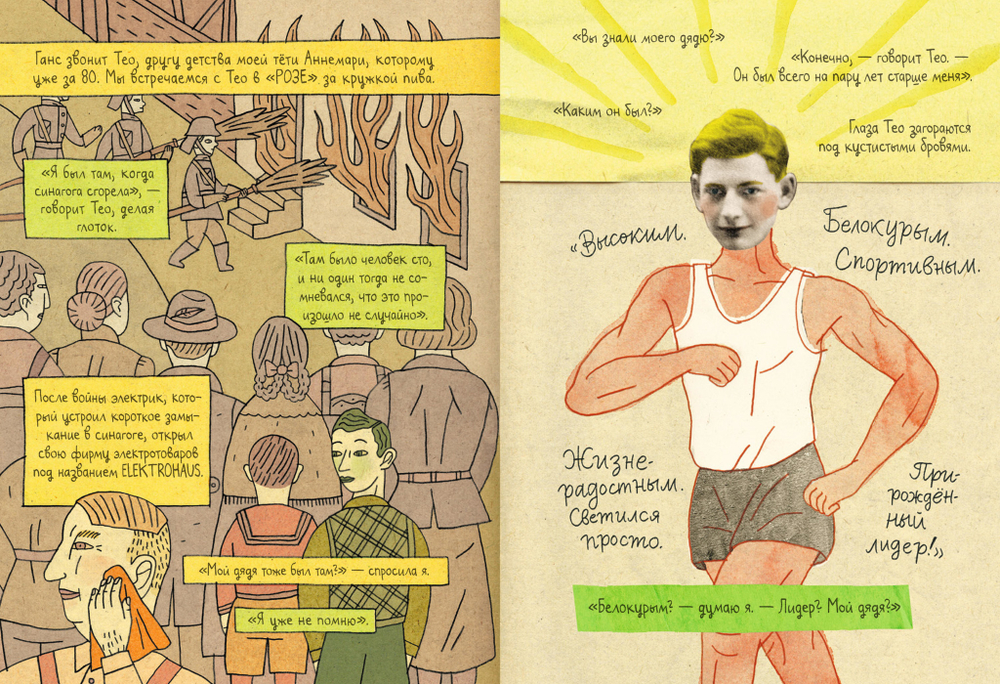 Ганс звонит Тео, другу детства моей тёти Аннемари, которому
уже за 80. Мы встречаемся с Тео в «РОЗЕ» за кружкой пива.
«Я был там, когда
синагога сгорела», —
говорит Тео, делая
глоток.
«Там было человек сто,
и ни один тогда не со-
мневался, что это про-
изошло не случайно».
После войны электрик, кото-
рый устроил короткое замы-
кание в синагоге, открыл
свою фирму электротоваров
под названием ELEKTROHAUS.
«Мой дядя тоже был там?» — спросила я.
«Я уже не помню».
«Вы знали моего дядю?»
«Конечно, — говорит Тео. —
Он был всего на пару лет старше меня».
«Каким он был?»
Глаза Тео загораются
под кустистыми бровями.
«Высоким.
Белокурым.
Спортивным.
Жизне-
радостным.
Светился
просто.
При-
рождён-
ный
лидер!»
«Белокурым? — думаю я. — Лидер? Мой дядя?»